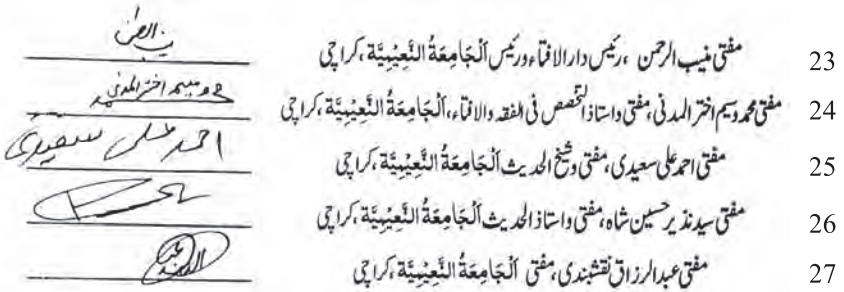 23 مفتی منیب الرحمن ،رئیس دارالافتاء ورئیس اَلْجَامِعَةُ النَّعِیْمِیَّة ،کراچی
24 مفتی محمد وسیم اختر المدنی، مفتی واستاذ التخصص فی الفقہ والافتاء، اَلْجَامِعَةُ النَّعِیْمِیَّة ،کراچی محمد وسیم اختر المدنی
25 مفتی احمد علی سعیدی، مفتی وشیخ الحدیث اَلْجَامِعَةُ النَّعِیْمِیَّة ،کراچی احمد علی سعیدی
26 مفتی سید نذیر حسین شاہ، مفتی واستاذ الحدیث اَلْجَامِعَةُ النَّعِیْمِیَّة ،کراچی
27 مفتی عبدالرزاق نقشبندی، مفتی اَلْجَامِعَةُ النَّعِیْمِیَّة ،کراچی